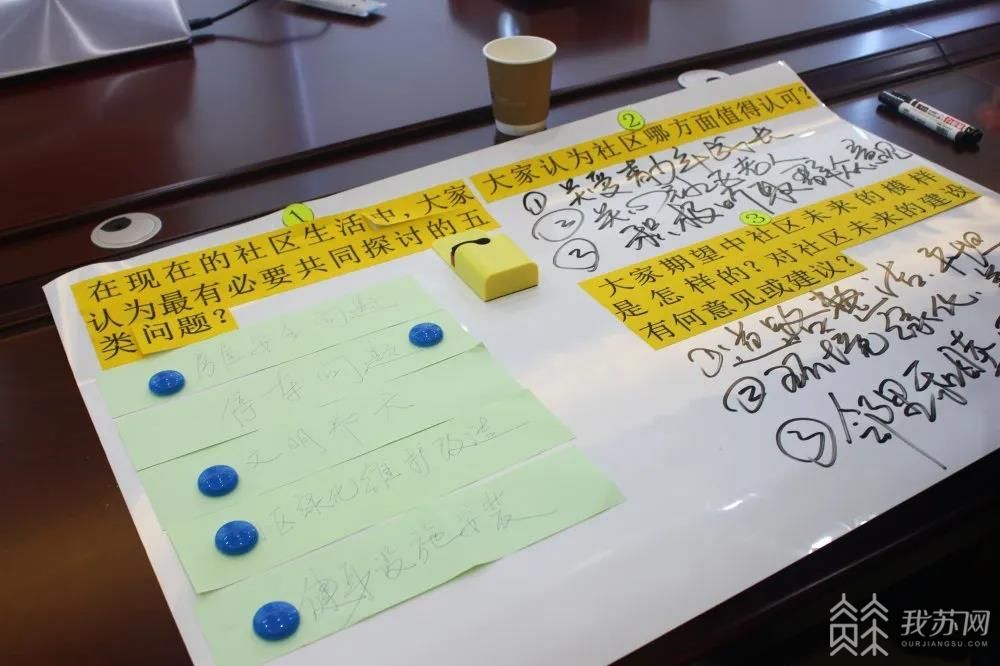 ①
在现在的社区生活中，大家
认为最有必要共同探讨的五
类问题？
安全问题
停车问题
文明养犬
区绿化维护改造
健身设施
②
大家认为社区哪方面值得认可？
① 关爱青少年成长
② 关心老人
③ 积极听取群众意见
③
大家期望中社区未来的模样
是怎样的？对社区未来的建设
有何意见或建议？
①道路整洁、平坦
② 环境绿化、
③ 邻里和睦
我苏网
OURJIANGSU.COM